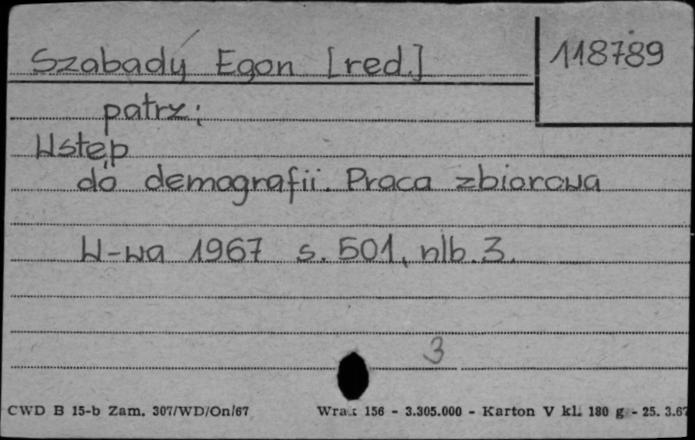 Szabady Egon [red.]
118789
patrz:
Wstęp
do demografii. Praca zbiorowa
W-wa 1967 s. 501, nlb. 3.
3
CWD B 15-b Zam. 307/WD/On/67 Wra 156 - 3.305.000 - Karton V kl. 180 g - 25. 3.67